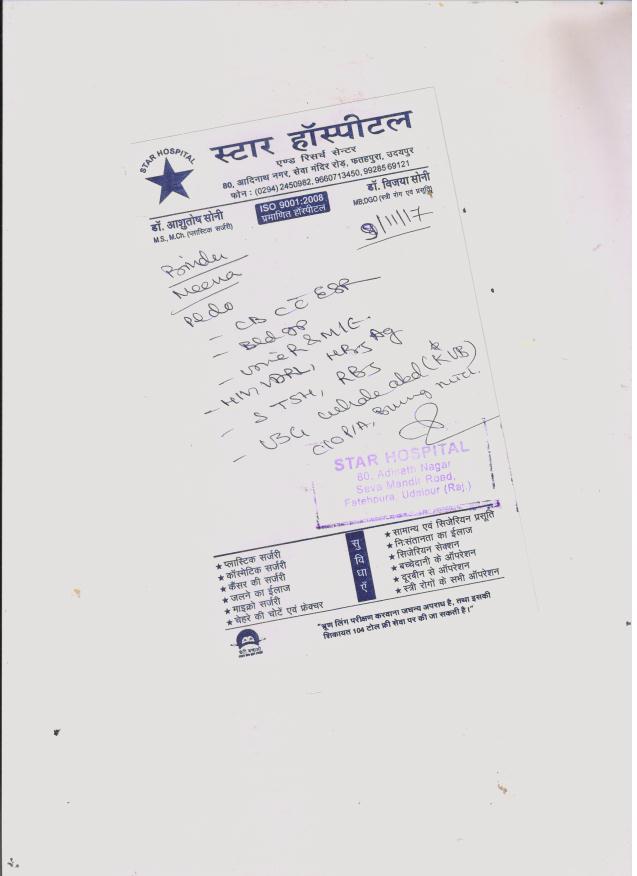 STAR HOSPITAL
स्टार हॉस्पीटल
एण्ड रिसर्च सेन्टर
80, आदिनाथ नगर, सेवा मंदिर रोड़, फतहपुरा, उदयपुर
फोन : (0294) 2450982, 9660713450, 9928569121
डॉ. आशुतोष सोनी
M.S., M.Ch. (प्लास्टिक सर्जरी)
ISO 9001:2008
प्रमाणित हॉस्पीटल
डॉ. विजया सोनी
MB,DGO (स्त्री रोग एवं प्रसूति)
9/11/17
Bindu
Meena
- CB C̄ ESR
- Bld gp
- Urine R & M/E.
- HIV, VDRL, HBsAg
- S TSH, RBS
- USG whole abd (KUB)
STAR HOSPITAL
80, Adinath Nagar
Seva Mandir Road,
Fatehpura, Udaipur (Raj.)
★ प्लास्टिक सर्जरी
★ कॉस्मेटिक सर्जरी
★ कैंसर की सर्जरी
★ जलने का ईलाज
★ माइक्रो सर्जरी
★ चेहरे की चोटें एवं फ्रेक्चर
सुविधाएँ
★ सामान्य एवं सिजेरियन प्रसूति
★ निःसंतानता का ईलाज
★ सिजेरियन सेक्शन
★ बच्चेदानी के ऑपरेशन
★ दूरबीन से ऑपरेशन
★ स्त्री रोगों के सभी ऑपरेशन
"भ्रूण लिंग परीक्षण करवाना जघन्य अपराध है, तथा इसकी
शिकायत 104 टोल फ्री सेवा पर की जा सकती है।"